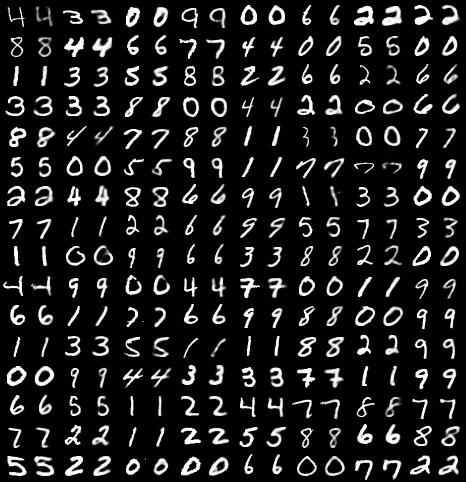 4 4 3 3 0 0 9 9 0 0 6 6 2 2 2 2
8 8 4 4 6 6 7 7 4 4 0 0 5 5 0 0
1 1 3 3 5 5 8 8 2 2 6 6 2 2 6 6
3 3 3 3 8 8 0 0 4 4 2 2 0 0 6 6
8 8 4 4 7 7 8 8 1 1 3 3 0 0 7 7
5 5 0 0 5 5 9 9 1 1 7 7 7 7 9 9
2 2 4 4 8 8 6 6 9 9 1 1 3 3 0 0
7 7 1 1 2 2 6 6 9 9 5 5 7 7 3 3
1 1 0 0 9 9 6 6 3 3 8 8 2 2 0 0
4 4 9 9 0 0 4 4 7 7 0 0 1 1 9 9
6 6 1 1 7 7 6 6 9 9 8 8 0 0 9 9
1 1 3 3 5 5 1 1 1 1 8 8 2 2 9 9
0 0 9 9 4 4 3 3 3 3 7 7 1 1 9 9
6 6 5 5 1 1 2 2 4 4 7 7 8 8 7 7
7 7 2 2 1 1 2 2 5 5 8 8 6 6 8 8
5 5 2 2 0 0 0 0 6 6 0 0 7 7 2 2